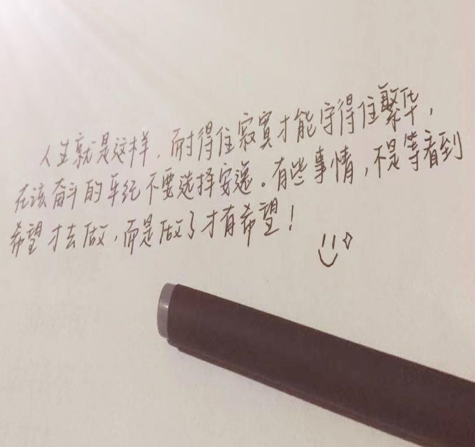 人生就是这样，耐得住寂寞才能守得住繁华，
在该奋斗的年纪不要选择安逸。有些事情，不是等看到
希望才去做，而是做了才有希望！